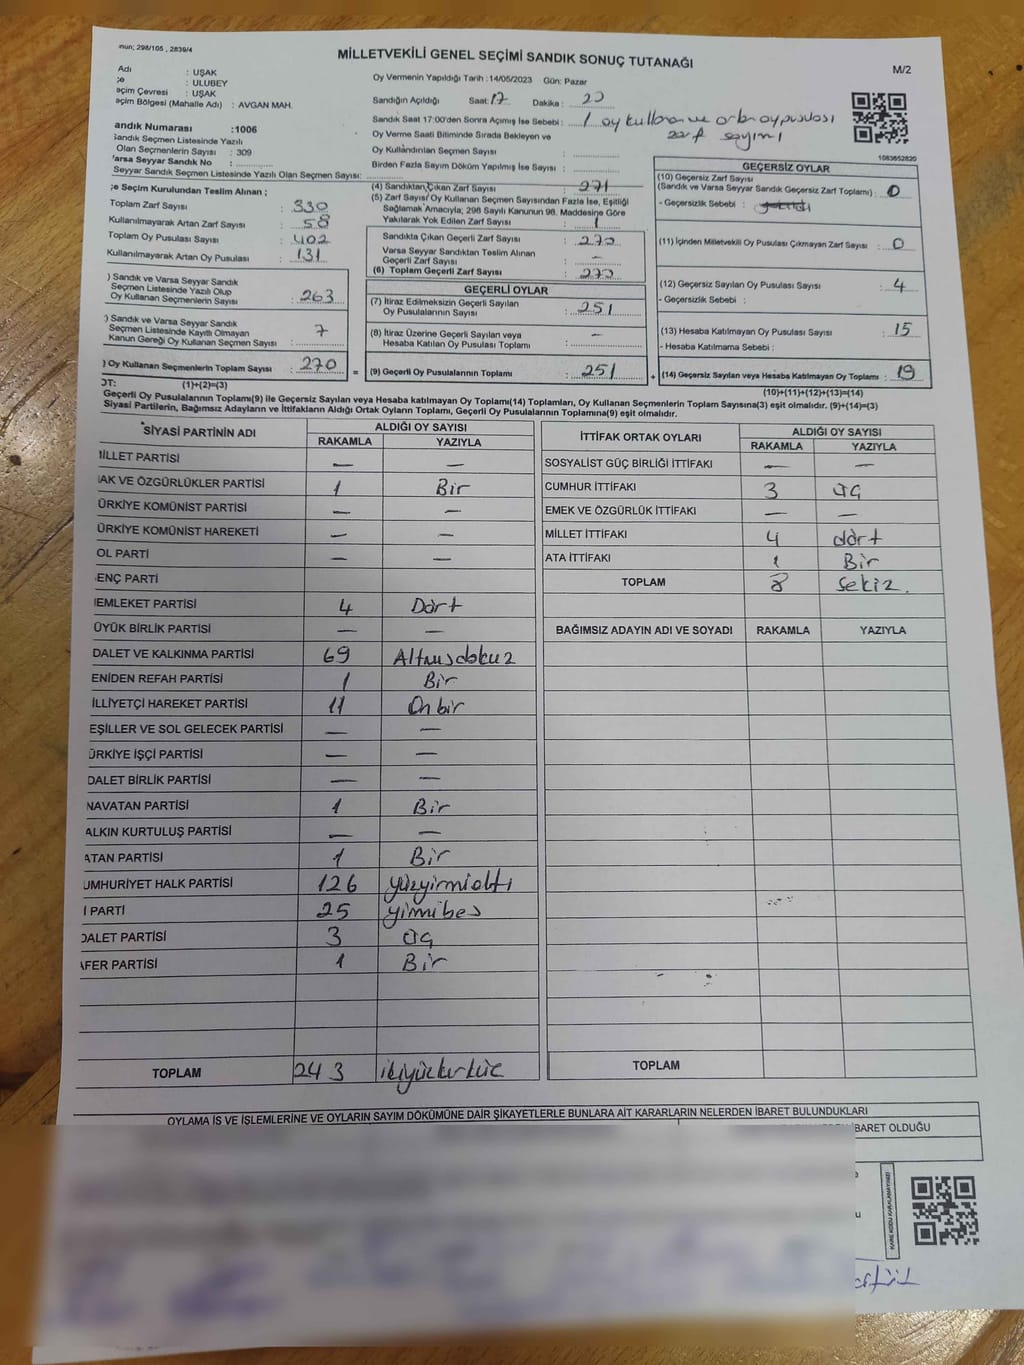 nun; 298/105 , 2839/4
MİLLETVEKİLİ GENEL SEÇİMİ SANDIK SONUÇ TUTANAĞI
M/2
Adı : UŞAK
çe : ULUBEY
eçim Çevresi : UŞAK
eçim Bölgesi (Mahalle Adı) : AVGAN MAH.
Oy Vermenin Yapıldığı Tarih :14/05/2023 Gün: Pazar
Sandığın Açıldığı Saat: 17 Dakika : 20
Sandık Saat 17:00'den Sonra Açımış İse Sebebi : 1 oy kullanan ve artan oy pusulası
zarf sayımı
Oy Verme Saati Bitiminde Sırada Bekleyen ve
Oy Kullandırılan Seçmen Sayısı :
Birden Fazla Sayım Döküm Yapılmış İse Sayısı :
andık Numarası :1006
Sandık Seçmen Listesinde Yazılı
Olan Seçmenlerin Sayısı : 309
Varsa Seyyar Sandık No :
Seyyar Sandık Seçmen Listesinde Yazılı Olan Seçmen Sayısı:
1083652820
çe Seçim Kurulundan Teslim Alınan ;
Toplam Zarf Sayısı : 330
Kullanılmayarak Artan Zarf Sayısı : 58
Toplam Oy Pusulası Sayısı : 402
Kullanılmayarak Artan Oy Pusulası : 131
) Sandık ve Varsa Seyyar Sandık
Seçmen Listesinde Yazılı Olup
Oy Kullanan Seçmenlerin Sayısı : 263
) Sandık ve Varsa Seyyar Sandık
Seçmen Listesinde Kayıtlı Olmayan
Kanun Gereği Oy Kullanan Seçmen Sayısı : 7
) Oy Kullanan Seçmenlerin Toplam Sayısı : 270 =
(4) Sandıktan Çıkan Zarf Sayısı : 271
(5) Zarf Sayısı Oy Kullanan Seçmen Sayısından Fazla İse, Eşitliği
Sağlamak Amacıyla, 298 Sayılı Kanunun 98. Maddesine Göre
Yakılarak Yok Edilen Zarf Sayısı : 1
Sandıkta Çıkan Geçerli Zarf Sayısı : 270
Varsa Seyyar Sandıktan Teslim Alınan
Geçerli Zarf Sayısı : —
(6) Toplam Geçerli Zarf Sayısı : 270
GEÇERLİ OYLAR
(7) İtiraz Edilmeksizin Geçerli Sayılan
Oy Pusulalarının Sayısı : 251
(8) İtiraz Üzerine Geçerli Sayılan veya
Hesaba Katılan Oy Pusulası Toplamı : —
(9) Geçerli Oy Pusulalarının Toplamı : 251 +
GEÇERSİZ OYLAR
(10) Geçersiz Zarf Sayısı
(Sandık ve Varsa Seyyar Sandık Geçersiz Zarf Toplamı) : 0
- Geçersizlik Sebebi :
(11) İçinden Milletvekili Oy Pusulası Çıkmayan Zarf Sayısı : 0
(12) Geçersiz Sayılan Oy Pusulası Sayısı : 4
- Geçersizlik Sebebi :
(13) Hesaba Katılmayan Oy Pusulası Sayısı : 15
- Hesaba Katılmama Sebebi :
(14) Geçersiz Sayılan veya Hesaba Katılmayan Oy Toplamı : 19
OT: (1)+(2)=(3) (10)+(11)+(12)+(13)=(14)
Geçerli Oy Pusulalarının Toplamı(9) ile Geçersiz Sayılan veya Hesaba katılmayan Oy Toplamı(14) Toplamları, Oy Kullanan Seçmenlerin Toplam Sayısına(3) eşit olmalıdır. (9)+(14)=(3)
Siyasi Partilerin, Bağımsız Adayların ve İttifakların Aldığı Ortak Oyların Toplamı, Geçerli Oy Pusulalarının Toplamına(9) eşit olmalıdır.
SİYASİ PARTİNİN ADI ALDIĞI OY SAYISI
RAKAMLA YAZIYLA
MİLLET PARTİSİ — —
AK VE ÖZGÜRLÜKLER PARTİSİ 1 Bir
ÜRKİYE KOMÜNİST PARTİSİ — —
ÜRKİYE KOMÜNİST HAREKETİ — —
OL PARTİ — —
ENÇ PARTİ
EMLEKET PARTİSİ 4 Dört
ÜYÜK BİRLİK PARTİSİ — —
DALET VE KALKINMA PARTİSİ 69 Altmışdokuz
ENİDEN REFAH PARTİSİ 1 Bir
İLLİYETÇİ HAREKET PARTİSİ 11 Onbir
EŞİLLER VE SOL GELECEK PARTİSİ — —
ÜRKİYE İŞÇİ PARTİSİ — —
DALET BİRLİK PARTİSİ — —
NAVATAN PARTİSİ 1 Bir
ALKIN KURTULUŞ PARTİSİ — —
ATAN PARTİSİ 1 Bir
UMHURİYET HALK PARTİSİ 126 yüzyirmialtı
İ PARTİ 25 yirmibeş
DALET PARTİSİ 3 üç
AFER PARTİSİ 1 Bir
TOPLAM 243 ikiyüzkırküç
İTTİFAK ORTAK OYLARI ALDIĞI OY SAYISI
RAKAMLA YAZIYLA
SOSYALİST GÜÇ BİRLİĞİ İTTİFAKI — —
CUMHUR İTTİFAKI 3 üç
EMEK VE ÖZGÜRLÜK İTTİFAKI — —
MİLLET İTTİFAKI 4 dört
ATA İTTİFAKI 1 Bir
TOPLAM 8 sekiz.
BAĞIMSIZ ADAYIN ADI VE SOYADI RAKAMLA YAZIYLA
TOPLAM
OYLAMA İŞ VE İŞLEMLERİNE VE OYLARIN SAYIM DÖKÜMÜNE DAİR ŞİKAYETLERLE BUNLARA AİT KARARLARIN NELERDEN İBARET BULUNDUKLARI
İBARET OLDUĞU